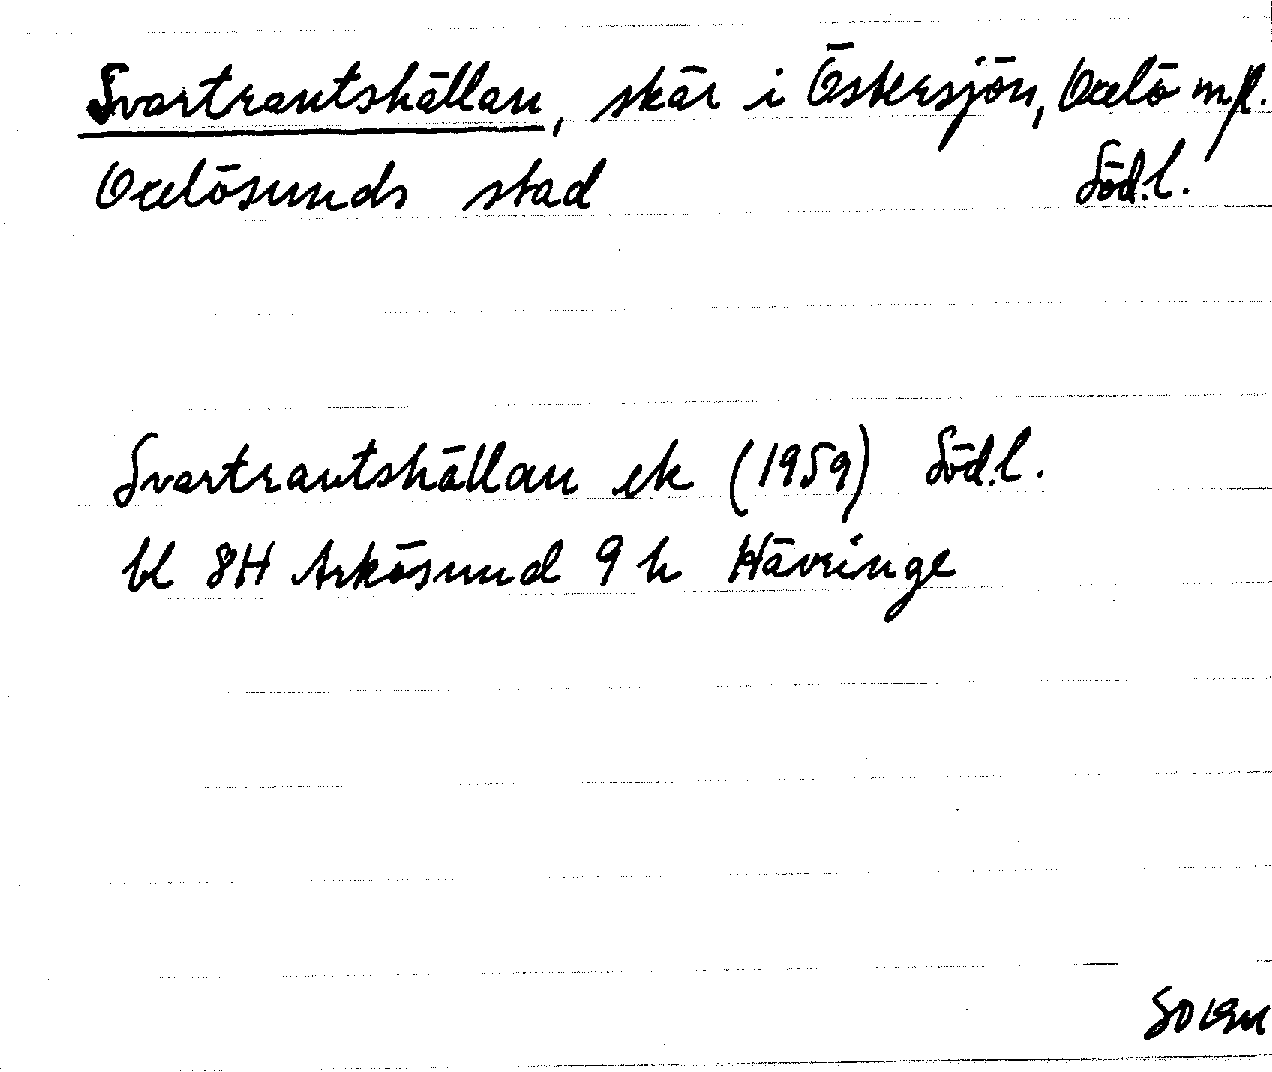 Svartrautshällan, skär i Östersjön, Oxelö m.fl.
Oxelösunds stad Södl.
Svartrautshällan ek (1959) Södl.
bl 8H Arkösund 9h Hävringe